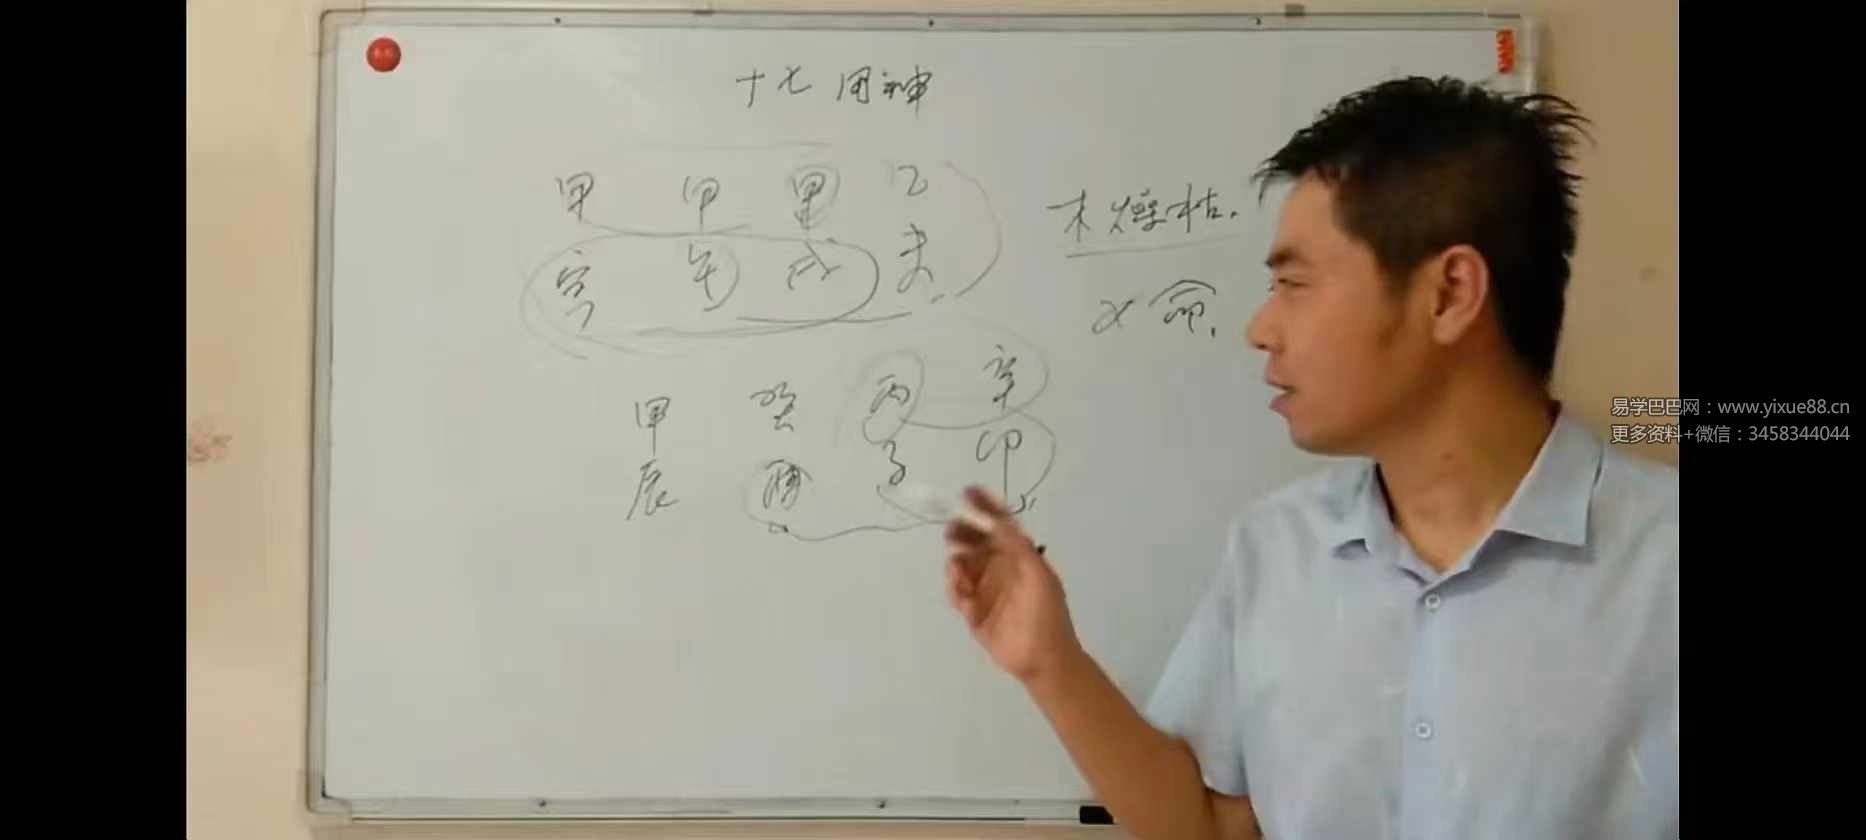 十七 用神
甲 甲 甲 乙
寅 午 戌 未
木燥枯.
命.
甲 癸 丙 辛
辰 酉 子 卯
易学巴巴网：www.yixue88.cn
更多资料+微信：3458344044